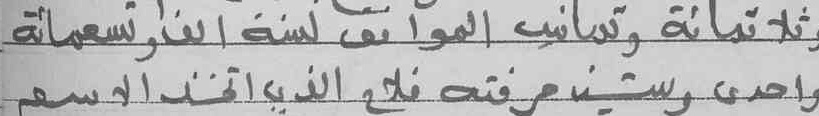 وثلاثمائة وثمانين الموافق لسنة الف وتسعمائة
واحدى وستين حرفته فلاح الذي اتخذ الاسم